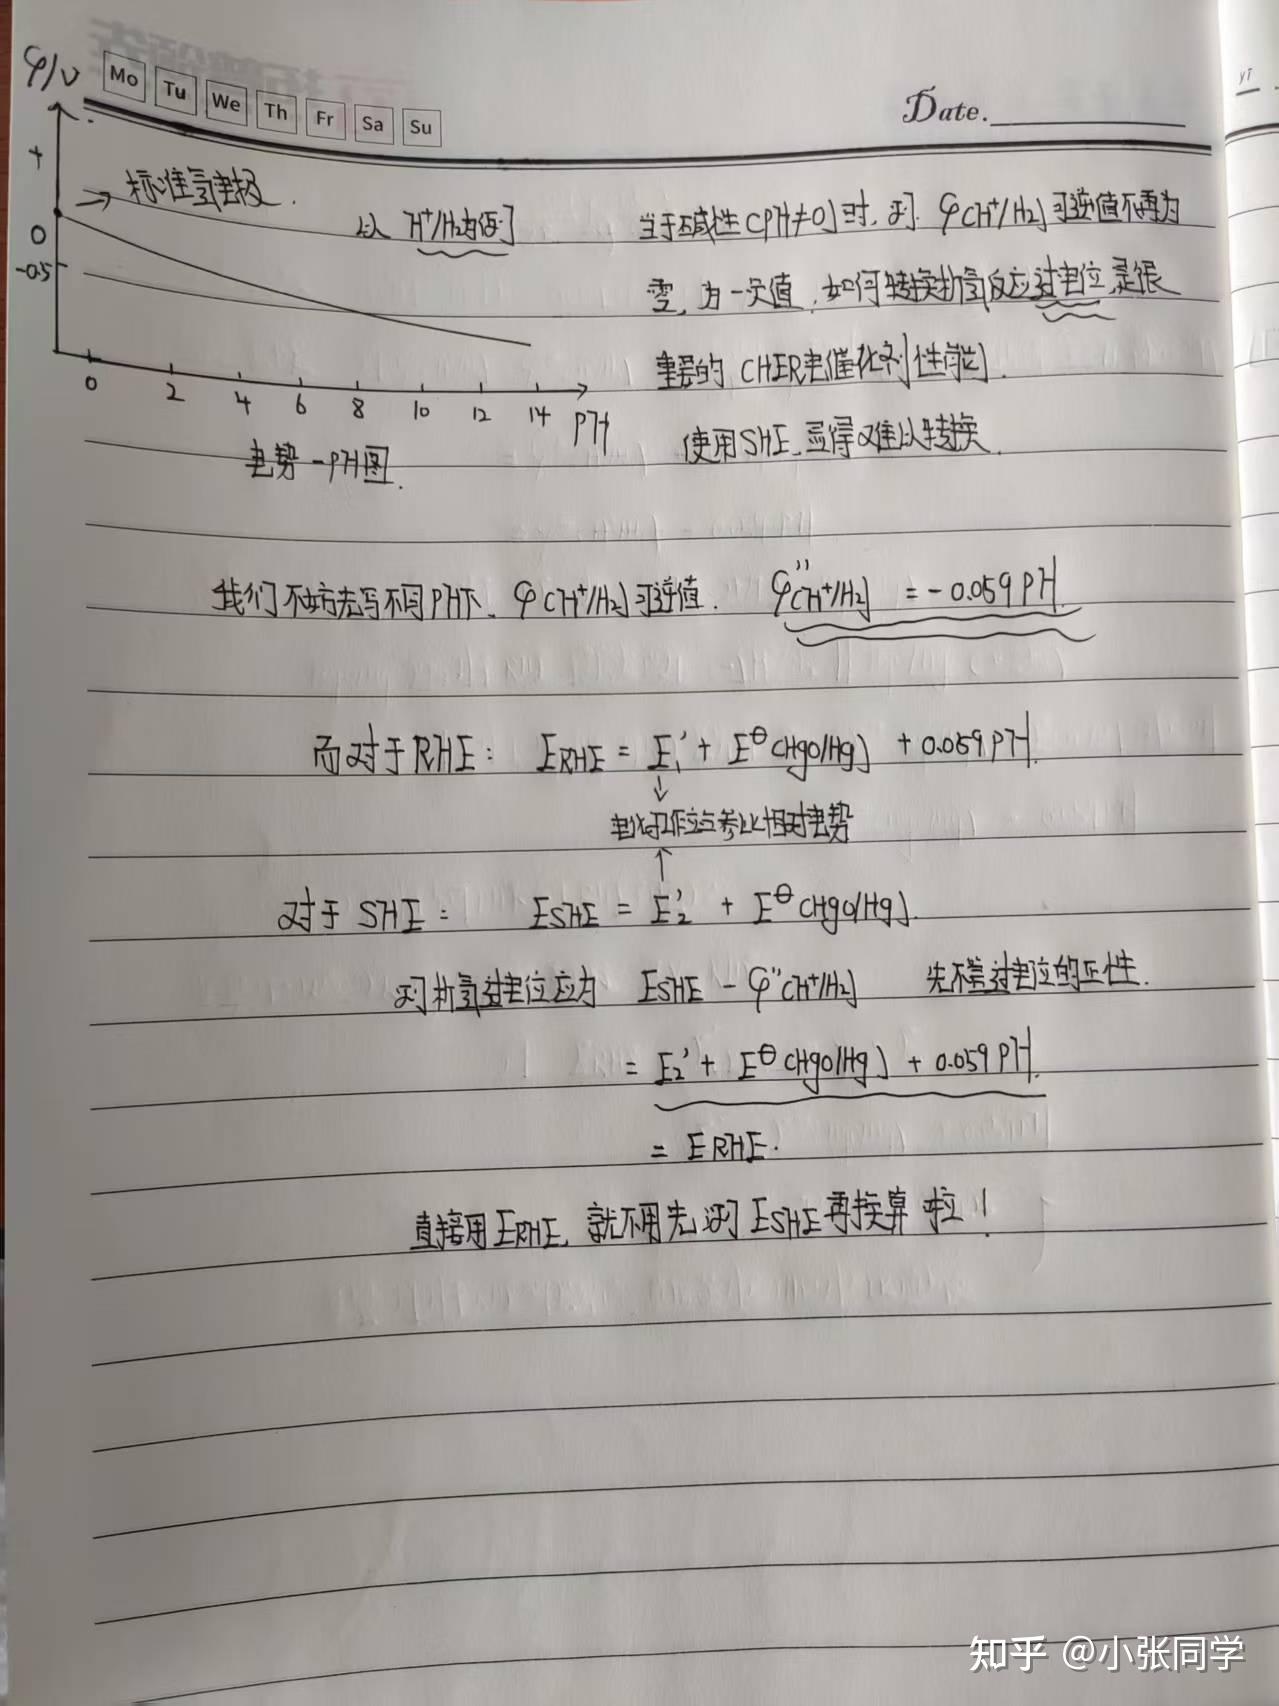 φ/v
Mo Tu We Th Fr Sa Su
Date.
+
→ 标准氢电极.
0
-0.5
以 H⁺/H₂为例
0 2 4 6 8 10 12 14 PH
电势-PH图.
当于碱性(PH≠0)时,则 φ(H⁺/H₂)可逆值不再为
零,为一定值,如何转换析氢反应过电位,是很
重要的(HER电催化剂性能).
使用SHE,显得难以转换.
我们不妨先写不同PH下,φ(H⁺/H₂)可逆值. φ''(H⁺/H₂) = -0.059PH.
而对于RHE: ERHE = E₁' + E^θ(HgO/Hg) + 0.059PH.
↓
电化学工作站与参比相对电势
↑
对于SHE: ESHE = E₂' + E^θ(HgO/Hg).
则析氢过电位应为 ESHE - φ''(H⁺/H₂) 先不管过电位的正性.
= E₂' + E^θ(HgO/Hg) + 0.059PH.
= ERHE.
直接用ERHE,就不用先测ESHE再换算啦!
知乎 @小张同学